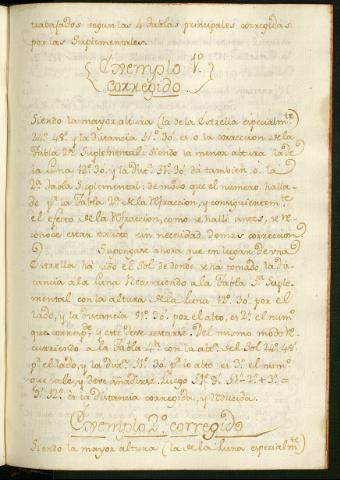 trabajados segun las 4 tablas principales corregidas
por las Suplementales.
Exemplo 1º.
corregido
Siendo la mayor altura (la de la Estrella especialmte
24º. 48'. y la distancia 51º. 30'. es 0 la correccion de la
Tabla 2ª. Suplemental: siendo la menor altura la de
la Luna 12º. 30'. y la distª. 51º. 30'. dà tambien 0 la
2ª. tabla Suplemental: de modo que el numero halla-
do pr. la Tabla 2ª. de la Refraccion, y consiguientemte.
el efecto de la Refraccion, como se hallò antes, se re-
conoce estar exacto sin necesidad de mas correccion
Supongase ahora que en lugar de una
Estrella hà sido el Sol de donde se ha tomado la dis-
tancia a la Luna. Recurriendo a la Tabla 3ª. Suple-
mental con la altura de la Luna 12º. 30'. por el
lado, y la distancia 51º. 30'. por el alto, es 2". el numº.
que corresponde, y este deve restarse. Del mismo modo re-
curriendo a la Tabla 4ª. con la altª. del Sol 24º. 48'.
pr. el lado, y la distª. 51º. 30'. pr. lo alto es 3". el num.
que sale, y deve añadirse. Luego
en la distancia corregida, y reducida.
Exemplo 2º. corregido
Siendo la mayor altura (la de la Luna especialmte